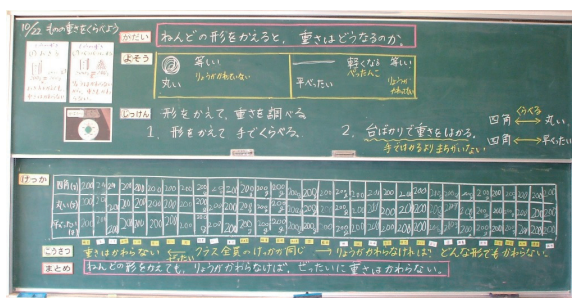 10/22 ものの重さをくらべよう
かだい ねんどの形をかえると、重さはどうなるのか。
よそう
丸い 等しい りょうがかわらない
平べったい 軽くなる ぺったんこ 等しい りょうが かわらない
じっけん 形をかえて、重さを調べる
1. 形をかえて 手でくらべる。
2. 台ばかりで重さをはかる。
手ではかるよりまちがいない
くらべる
四角 ⟷ 丸い
四角 ⟷ 平べったい
けっか
四角(g) 200 200 200 200 200 200 200 200 200 200 200 200 200 200 200 200 200 200 200 200 200 200 200 200 200 200 200
丸い(g) 200 200 200 200 200 200 200 200 200 200 200 200 200 200 200 200 200 200 200 200 200 200 200 200 200 200 200
平べったい(g) 200 200 200 200 200 200 200 200 200 200 200 200 200 200 200 200 200 200 200 200 200 200 200 200 200 200 200
こうさつ 重さはかわらない ← ぜったい クラス全員のけっかが同じ → りょうがかわらなければ、どんな形でもかわらない。
まとめ ねんどの形をかえても、りょうがかわらなければ、ぜったいに重さはかわらない。